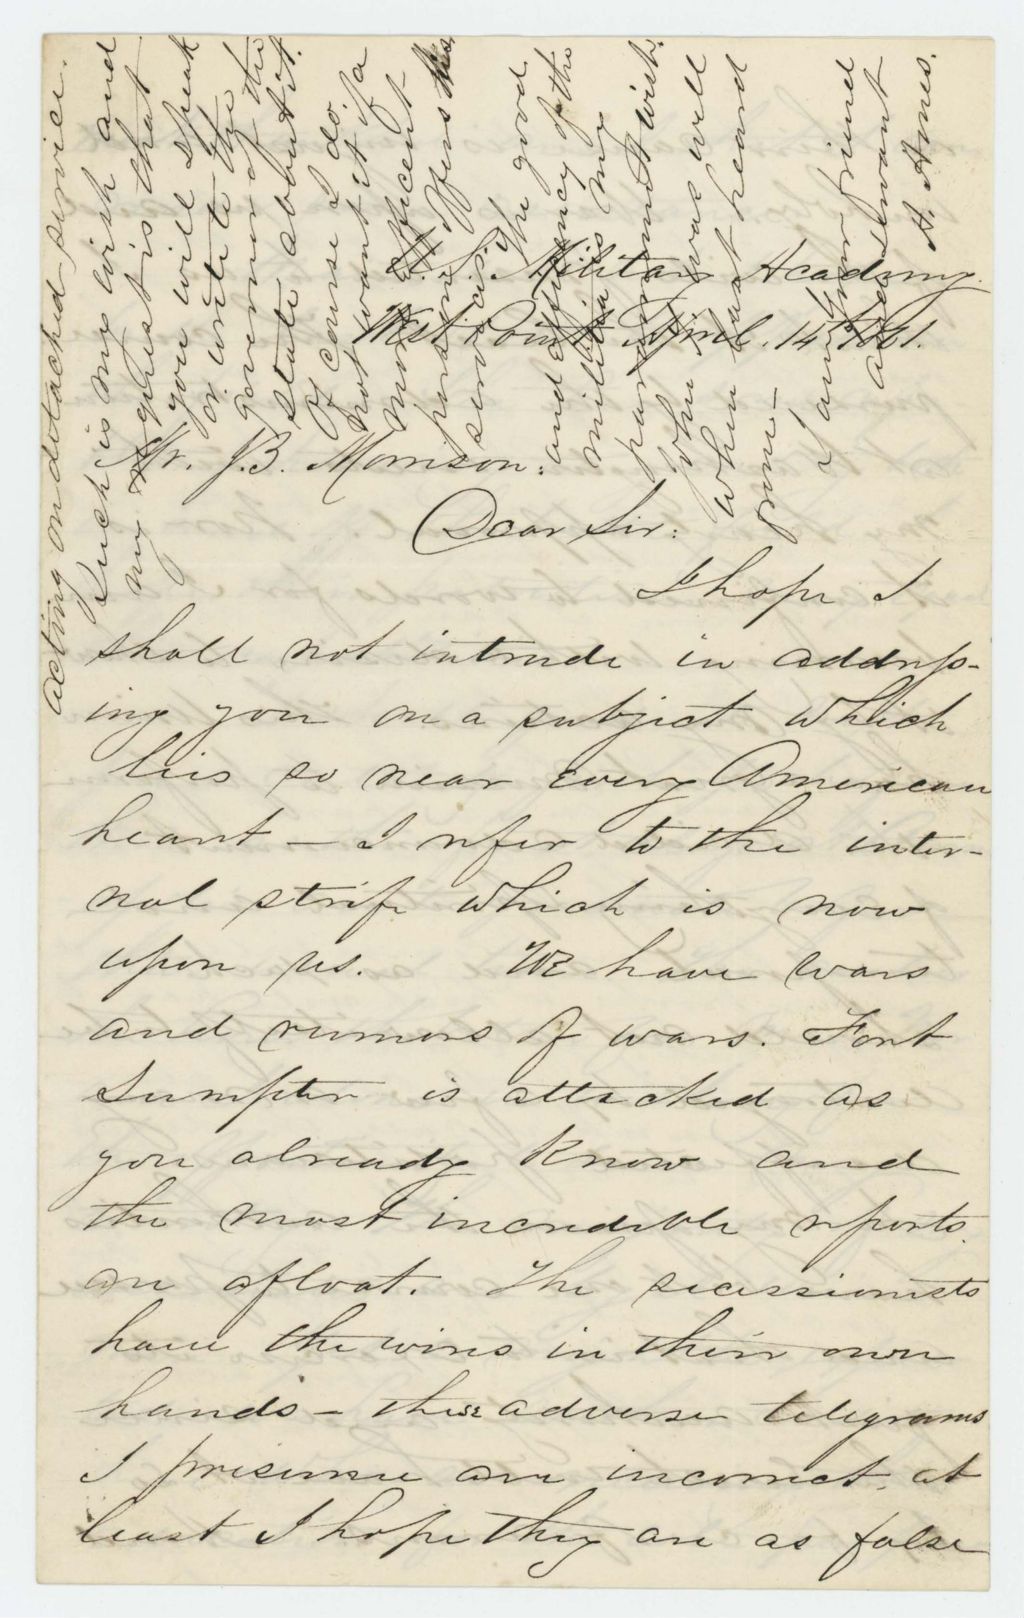 U. S. Military Academy.
West Point April. 14th 1861.
Mr. J. B. Morrison:
Dear Sir:
I hope I
shall not intrude in address-
ing you on a subject which
lies so near every American
heart — I refer to the inter-
nal strife which is now
upon us. We have wars
and rumors of wars. Fort
Sumpter is attacked as
you already know and
the most incredible reports.
are afloat. The secessionists
have the wires in their own
hands — these adverse telegrams
I presume are incorrect, at
least I hope they are as false
acting on detached service.
Such is my wish and
my request is that
you will speak
or write to the
governor of the
state about it.
Of course I do
not want it if a
more efficient
person offers his
services. The good
and efficiency of the
militia is my
paramount wish.
Who was well
when last heard
from —
I am your friend
and servant
A. Ames.